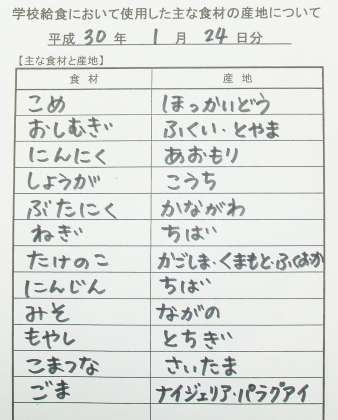 学校給食において使用した主な食材の産地について
平成 30 年 1 月 24 日分
【主な食材と産地】
食材 産地
こめ ほっかいどう
おしむぎ ふくい・とやま
にんにく あおもり
しょうが こうち
ぶたにく かながわ
ねぎ ちば
たけのこ かごしま・くまもと・ふくおか
にんじん ちば
みそ ながの
もやし とちぎ
こまつな さいたま
ごま ナイジェリア・パラグアイ